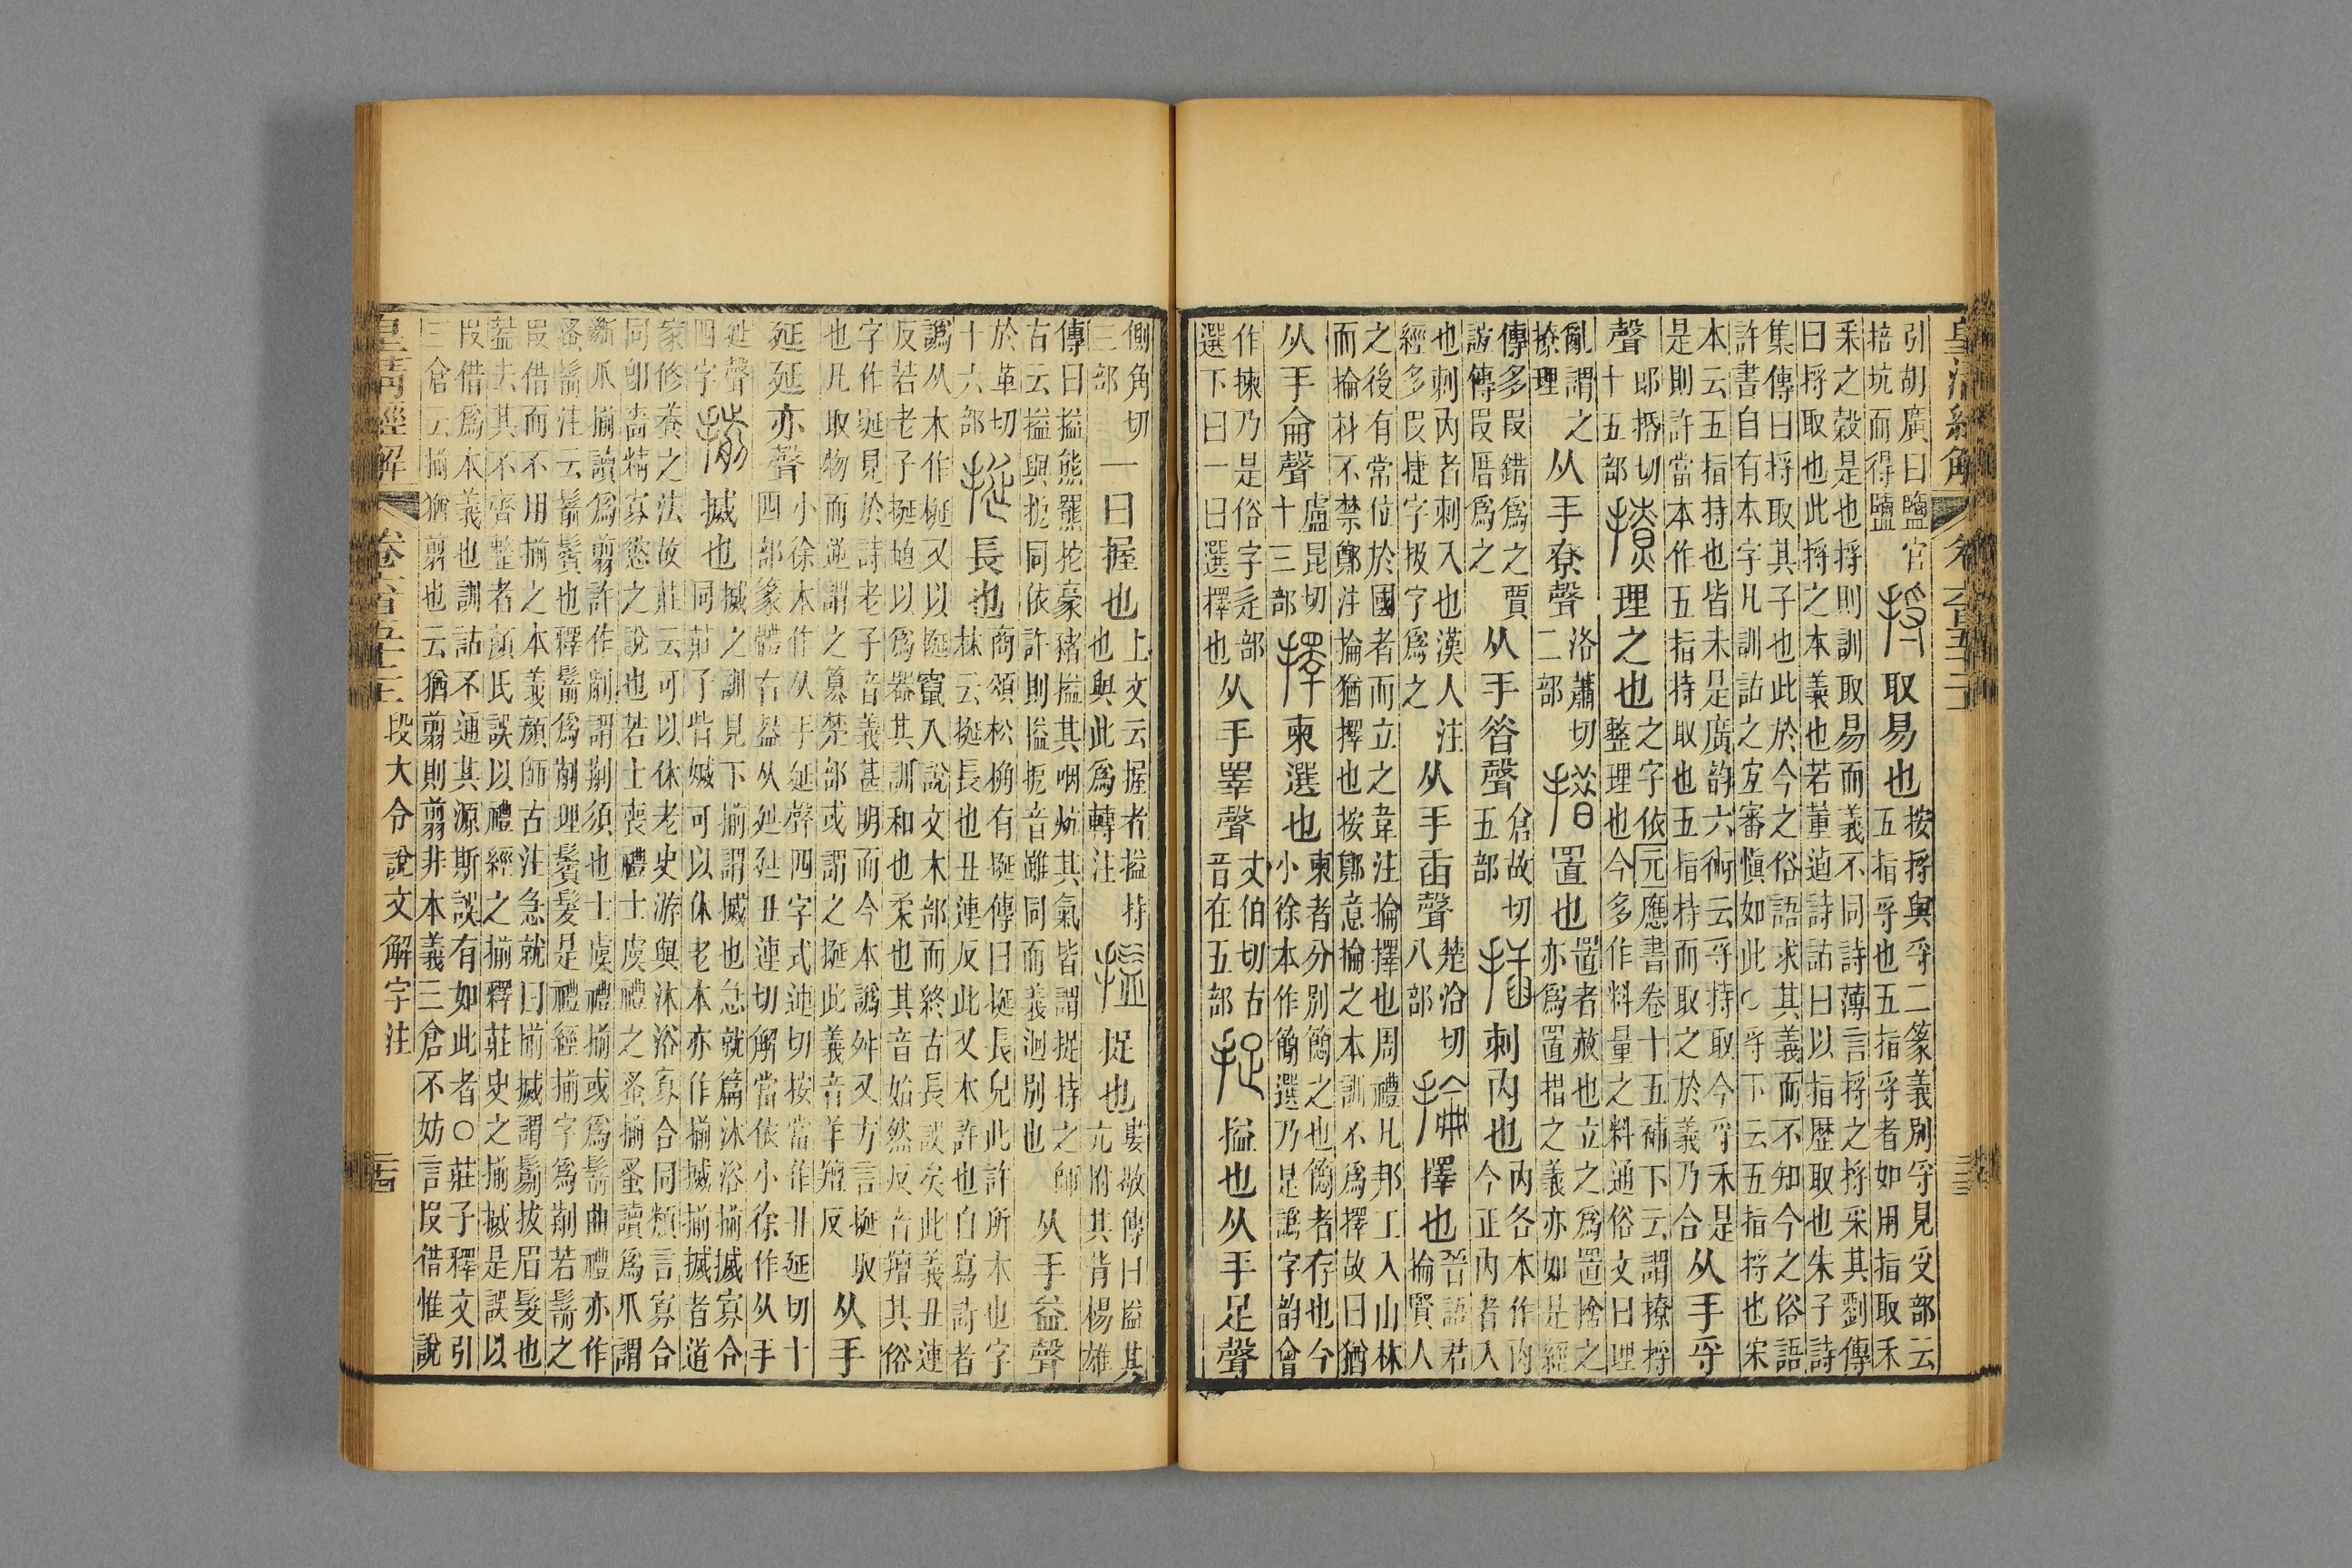 皇清經解 卷六百五十二
引胡廣曰鹽官掊坑而得鹽 捋 取易也 按捋與寽二篆義別寽見受部云五指寽也五指寽者如用指取禾
采之穀是也捋則訓取易而義不同詩薄言捋之捋采其劉傳曰捋取也此捋之本義也若董逌詩詁曰以指歷取也朱子詩
集傳曰捋取其子也此於今之俗語求其義而不知今之俗語許書自有本字凡訓詁之宐審慎如此○寽下云五指捋也宋
本云五指持也皆未是廣韵六術云寽持取今寽禾是是則許當本作五指持取也五指持而取之於義乃合 从手寽
聲 郎括切十五部 撩 理之也 之字依元應書卷十五補下云謂撩捋整理也今多作料量之料通俗文曰理
亂謂之撩理 从手尞聲 洛蕭切二部 措 置也 置者赦也立之爲置捨之亦爲置措之義亦如是經
傳多叚錯爲之賈誼傳叚厝爲之 从手昝聲 倉故切五部 插 刺內也 內各本作肉今正內者入
也刺內者刺入也漢人注經多叚捷字扱字爲之 从手臿聲 楚洽切八部 掄 擇也 晉語君掄賢人
之後有常位於國者而立之韋注掄擇也周禮凡邦工入山林而掄材不禁鄭注掄猶擇也按鄭意掄之本訓不爲擇故曰猶
从手侖聲 盧昆切十三部 擇 柬選也 柬者分別簡之也僞者存也今小徐本作簡選乃是譌字韵會
作揀乃是俗字辵部選下曰一曰選擇也 从手睪聲 丈伯切古音在五部 捉 搤也从手足聲
側角切三部 一曰握也 上文云握者搤持也與此爲轉注 搤 捉也 婁敬傳曰搤其亢拊其背楊雄
傳曰搤熊羆拕豪豬搤其咽炕其氣皆謂捉持之師古云搤與搹同依許則搤搹音雖同而義迥別也 从手益聲
於革切十六部 挻 長也 商頌松桷有挻傳曰挻長皃此許所本也字林云挻長也丑連反此又本許也自寫許者
譌从木作梴又以挻竄入說文木部而終古長誤矣此義丑連反若老子挻埴以爲器其訓和也柔也其音始然反音羶其俗
字作埏見於詩老子音義甚明而今本譌舛又方言挻取也凡取物而逆謂之篡楚部或謂之挻此義音羊羶反 从手
㢟㢟亦聲 小徐本作从手延聲四字式連切按當作丑延切十四部篆體右蓋从㢟㢟丑連切解當依小徐作从手
㢟聲四字 揃 搣也 搣之訓見下揃謂搣也急就篇沐浴揃搣寡合同莊子眥𡟬可以休老本亦作揃搣揃搣者道
家修養之法故莊云可以休老史游與沐浴寡合同類言寡合同卽嗇精寡慾之說也若士喪禮士虞禮之蚤揃蚤讀爲爪謂
斷爪揃讀爲翦許作劗謂䰅須也士虞禮揃或爲鬋曲禮亦作蚤鬋注云鬋鬢也釋鬋爲䰅理鬢髮是禮經揃字爲䰅若鬋之
叚借而不用揃之本義顏師古注急就曰揃搣謂鬄拔眉髮也葢去其不齊整者顏氏誤以禮經之揃釋莊史之揃搣是誤以
叚借爲本義也訓詁不通其源斯誤有如此者○莊子釋文引三倉云揃猶翦也云猶翦則翦非本義三倉不妨言叚借惟說
皇清經解 卷六百五十二 段大令說文解字注 二十四